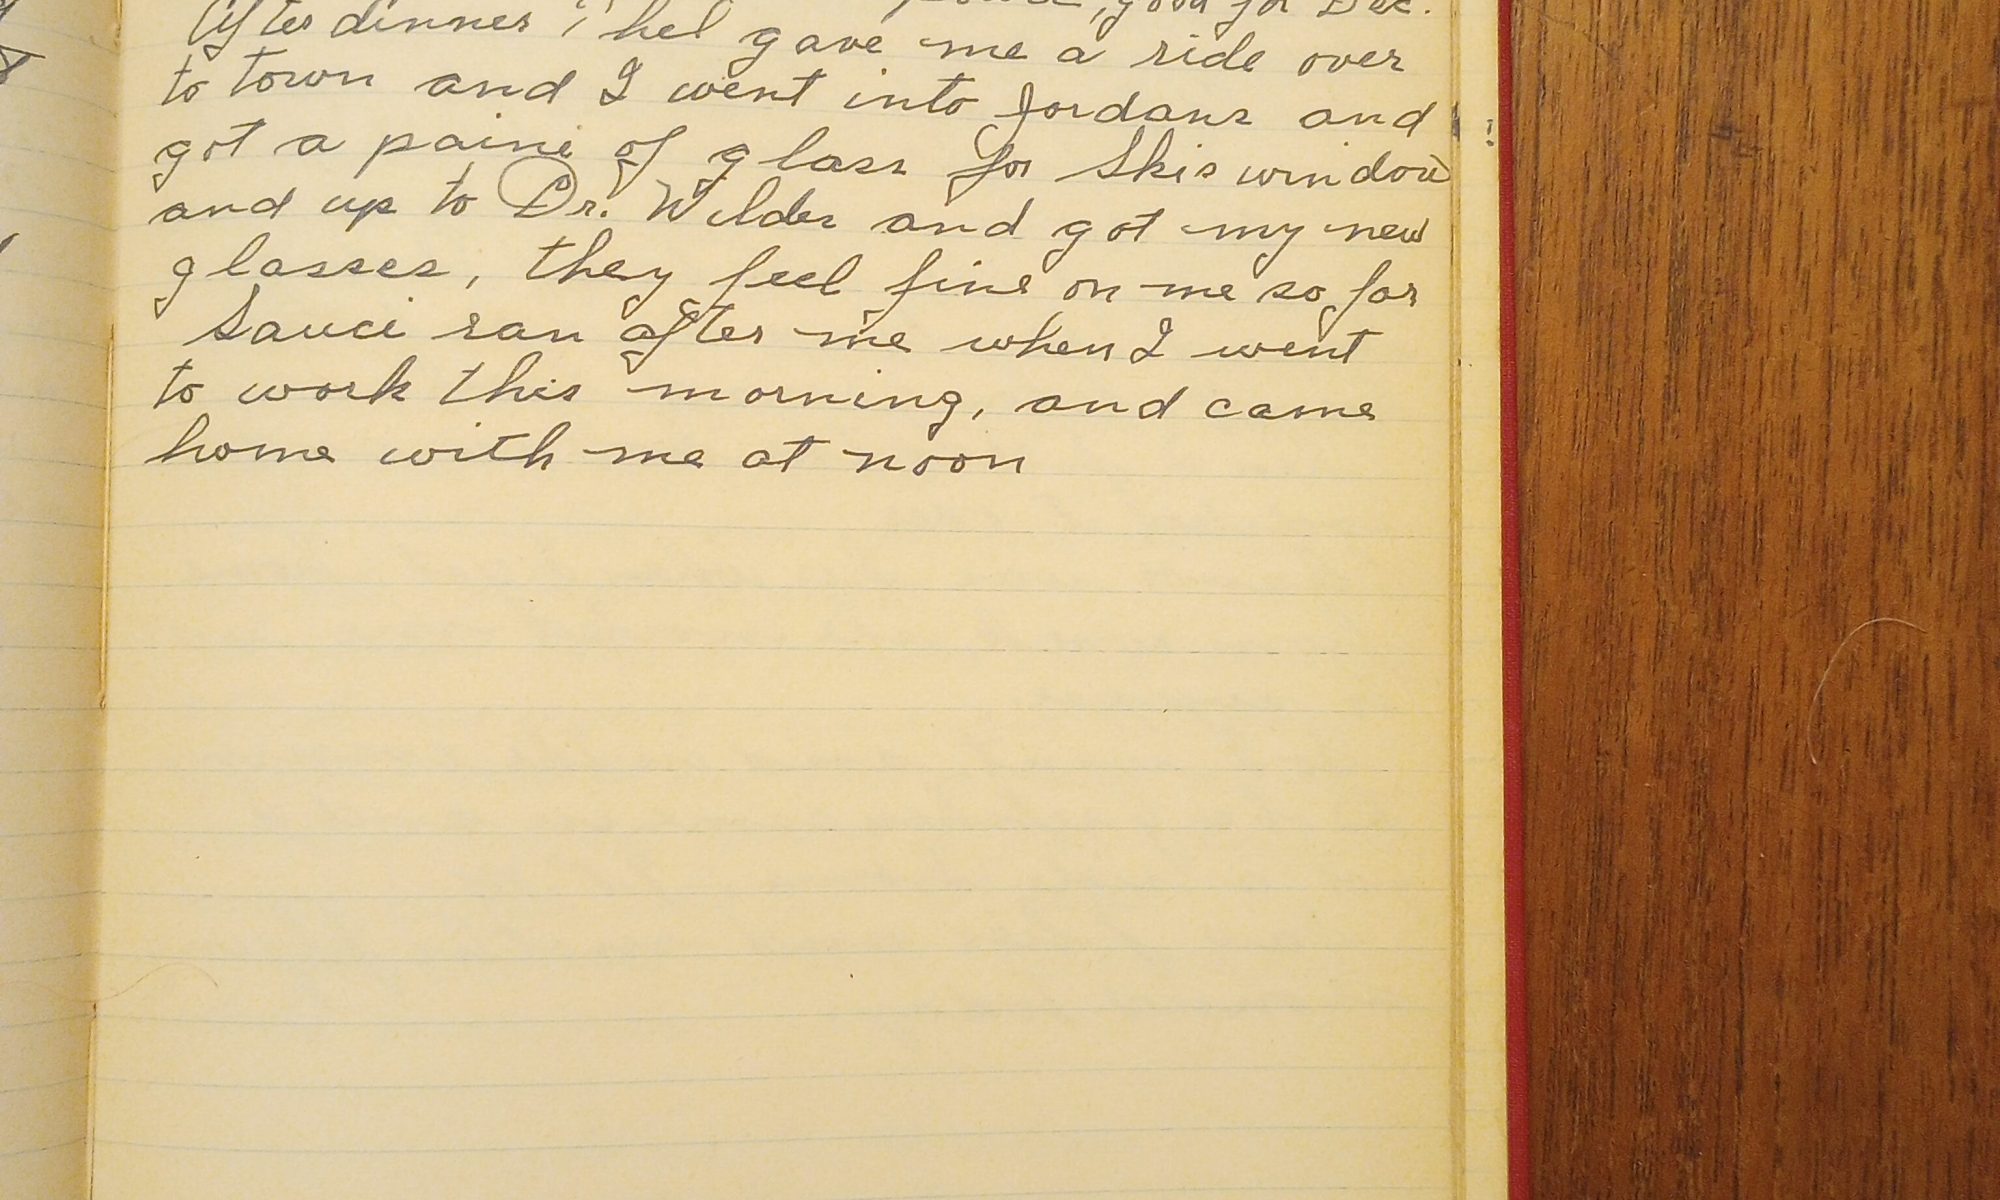 good for Dec.
After dinner Phel gave me a ride over
to town and I went into Jordans and
got a paine of glass for Skis window
and up to Dr. Wilder and got my new
glasses, they feel fine on me so far
Sauci ran after me when I went
to work this morning, and came
home with me at noon